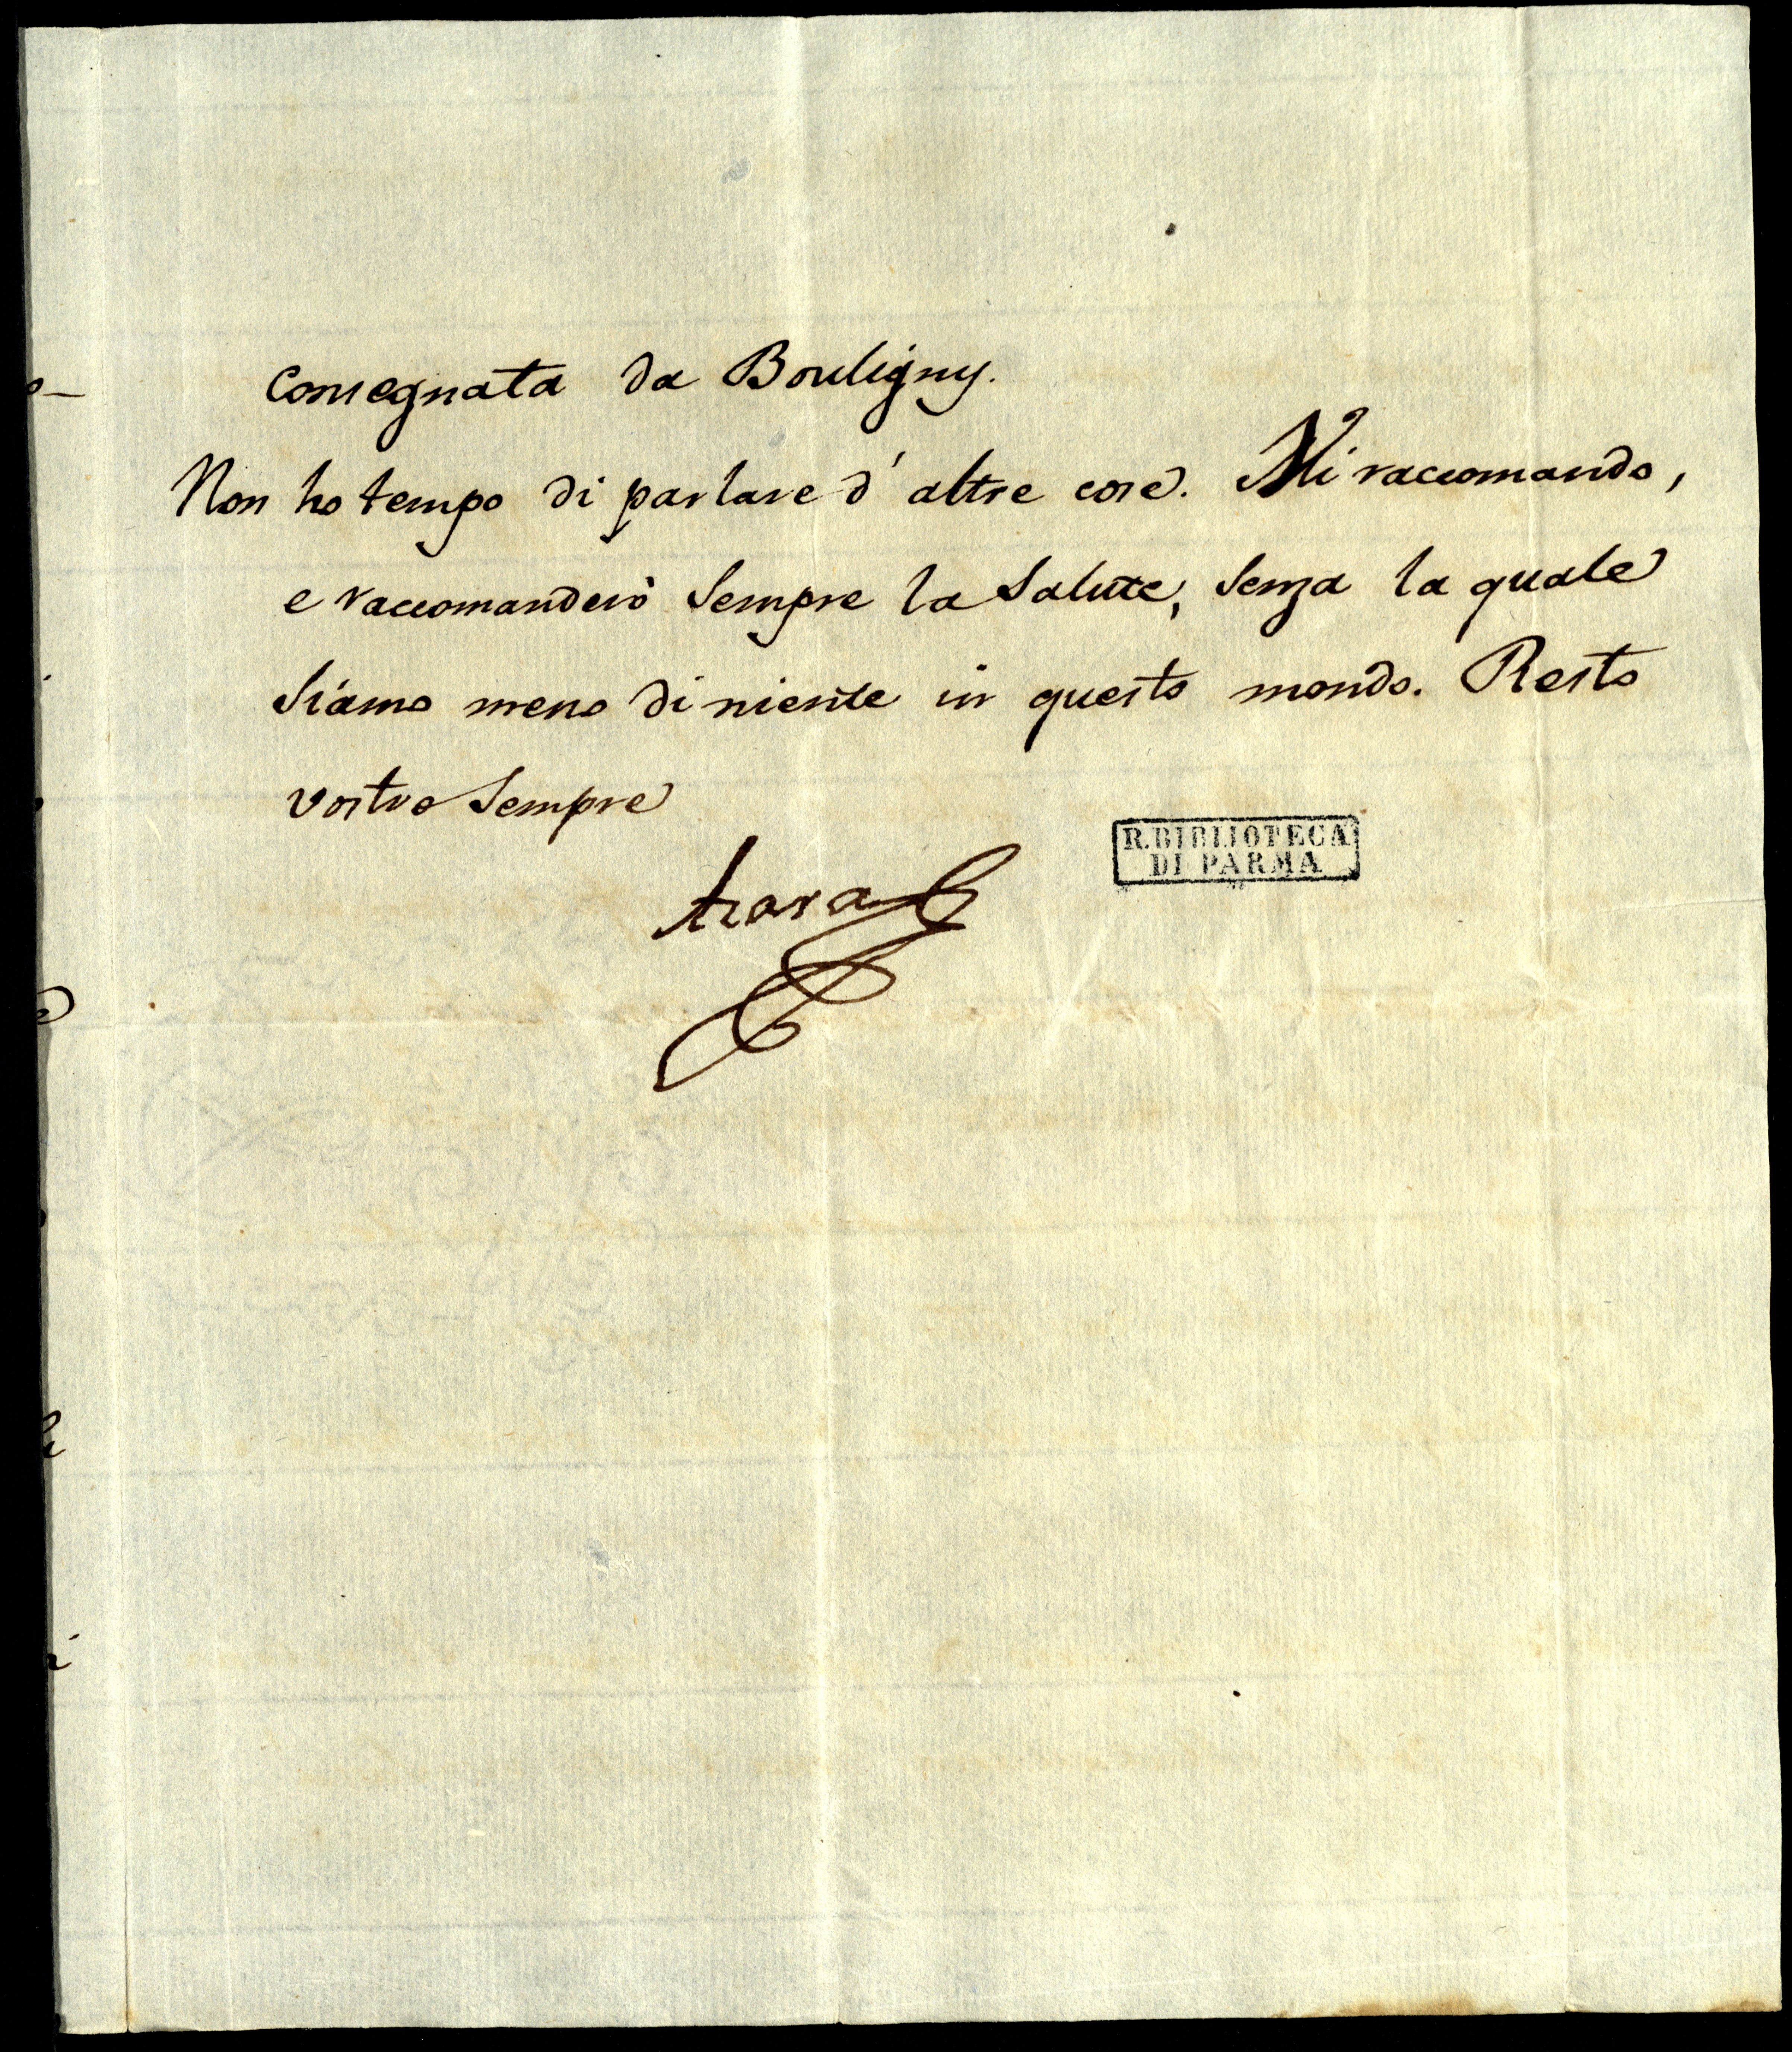 consegnata da Bouligny.
Non ho tempo di parlare d'altre cose. Mi raccomando,
e raccomanderò sempre la salute, senza la quale
siamo meno di niente in questo mondo. Resto
vostro sempre
Azara
R. BIBLIOTECA
DI PARMA